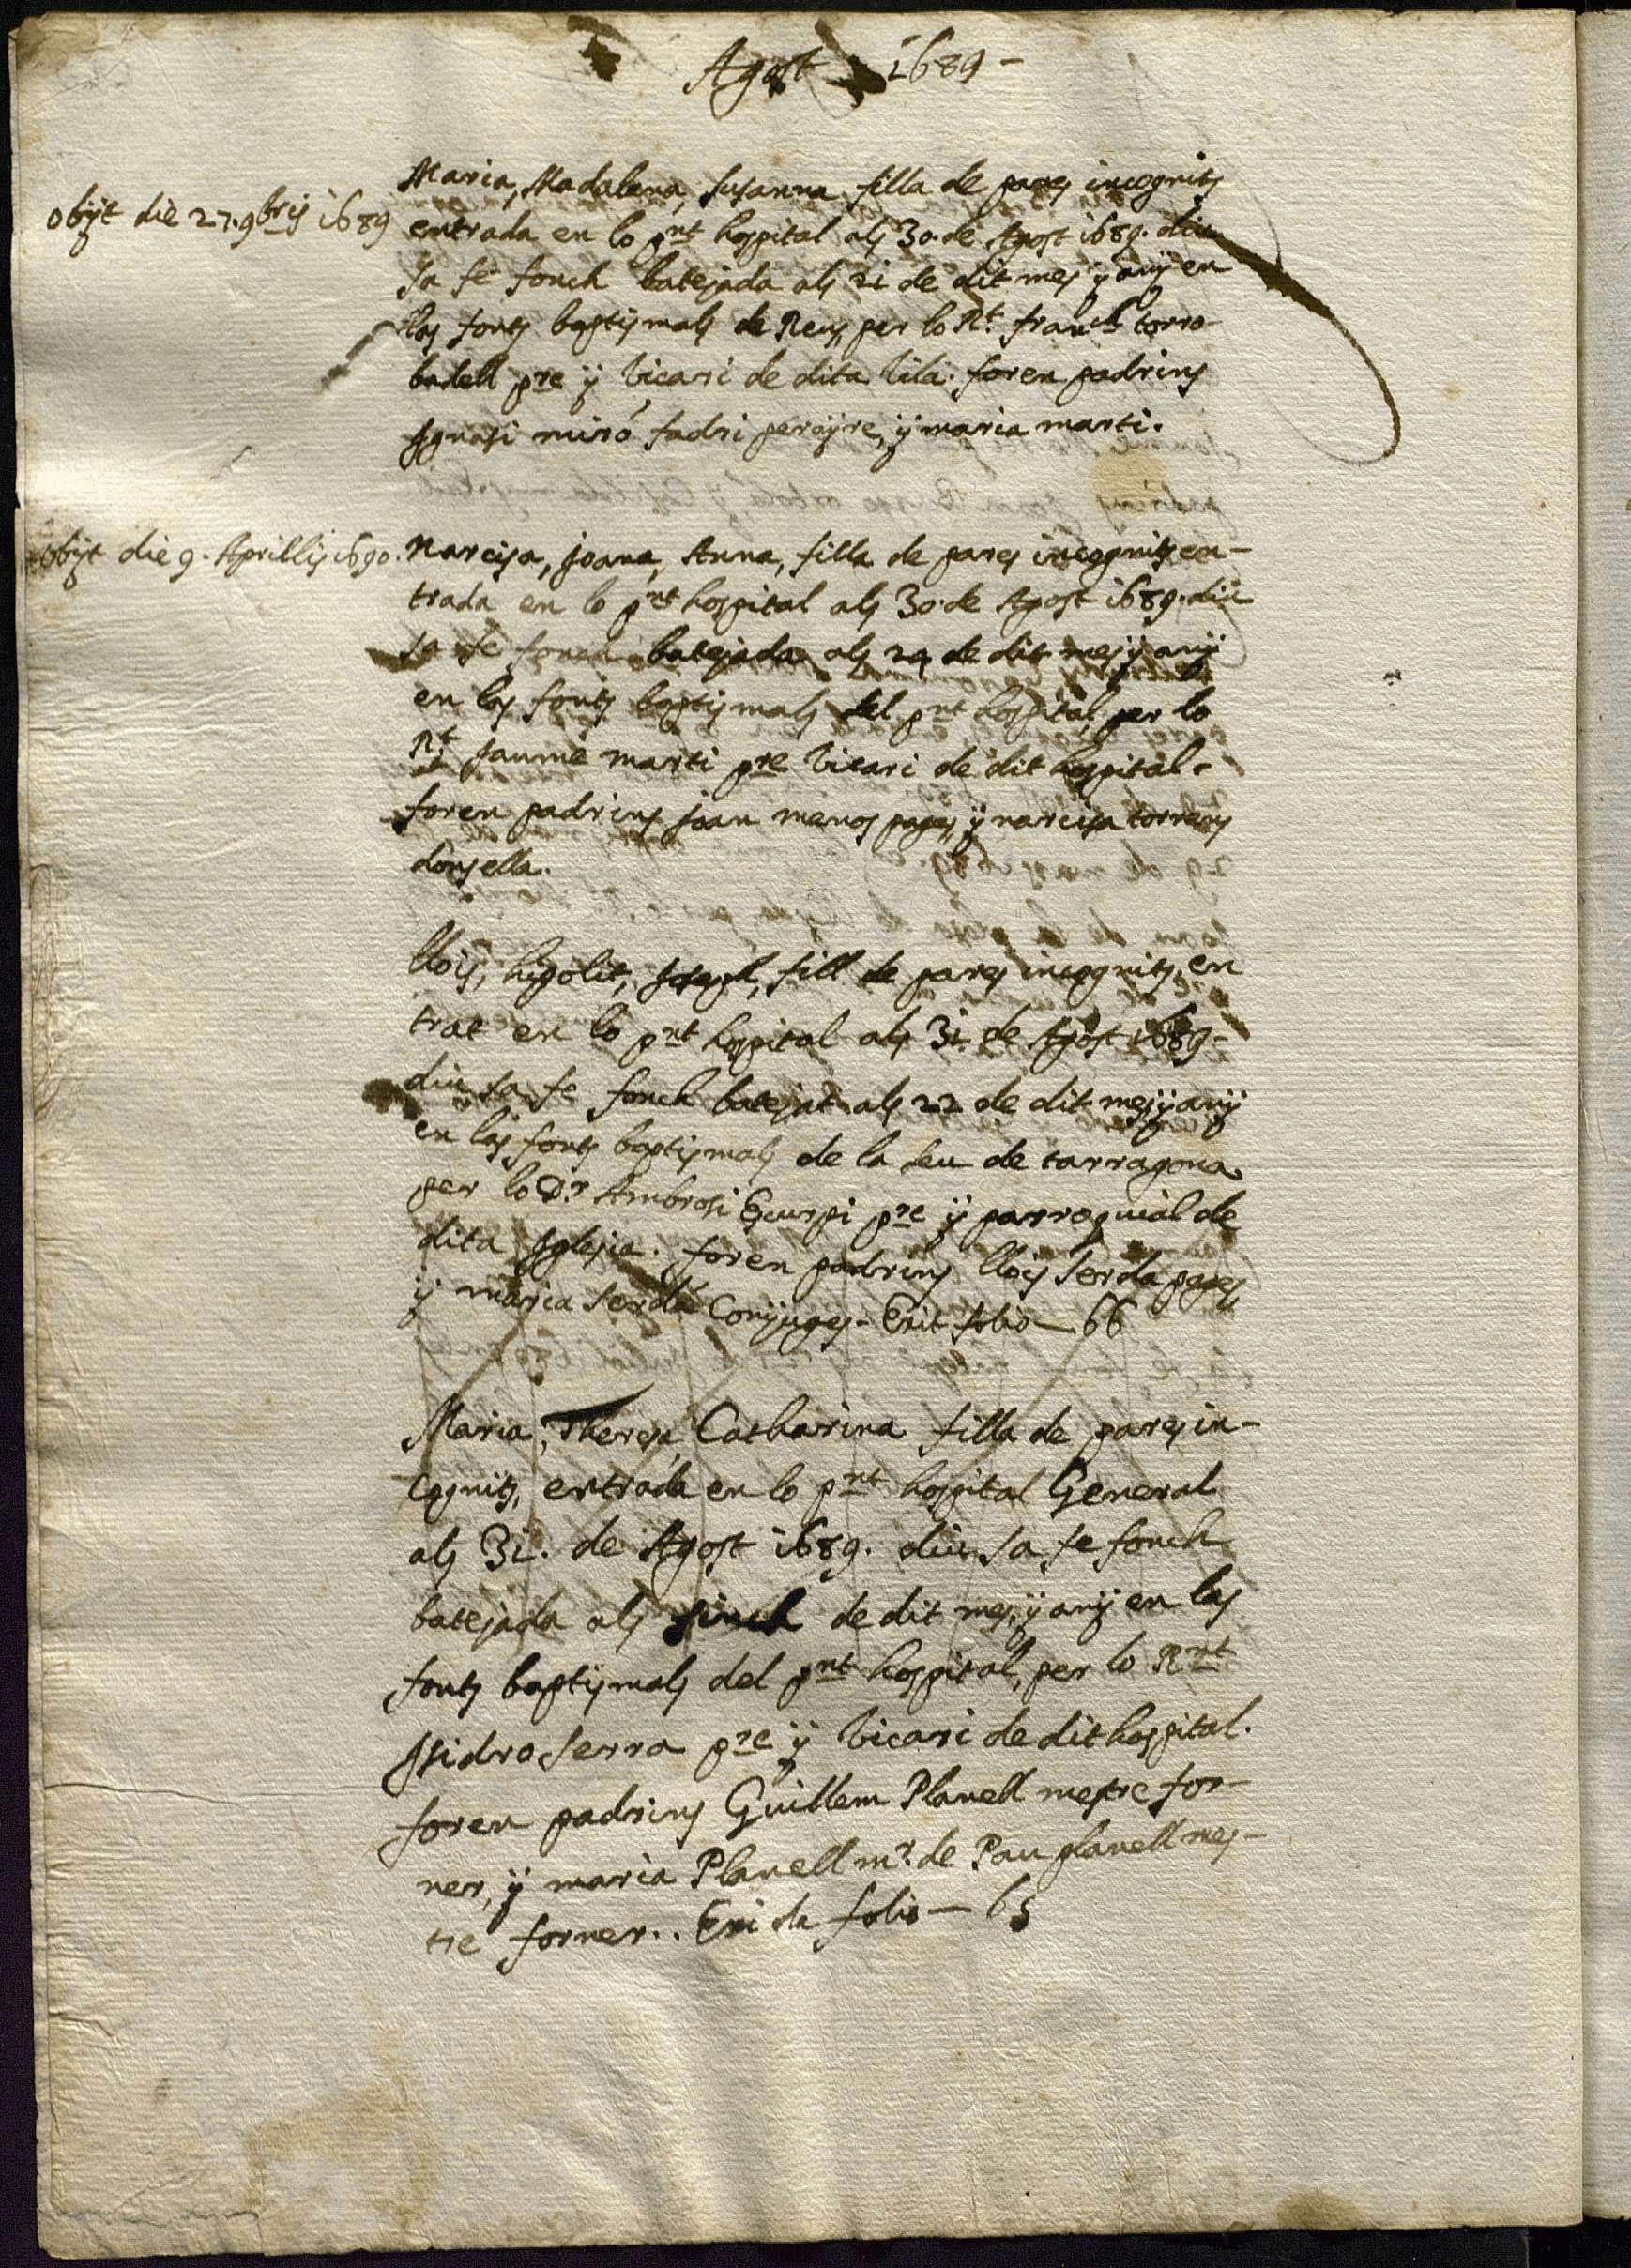 Agost 1689 -
Maria, Madalena, Susanna filla de pares incognits
obijt die 27. 9bris 1689
entrada en lo pnt hospital als 30. de Agost 1689. diu
sa fe fonch batejada als 21 de dit mes y any en
las fonts baptismals de Reus, per lo Rt. Franch torro-
badell pre y Vicari de dita Vila. foren padrins
Ignasi miró fadri perayre, y maria marti.
obijt die 9. Aprillis 1690.
Narcisa, Joana, Anna, filla de pares incognits en-
trada en lo pnt hospital als 30. de Agost 1689. diu
sa fe fonch batejada als 24 de dit mes y any
en las fonts baptismals del pnt hospital, per lo
Rt Jaume marti pre Vicari de dit hospital.
foren padrins Joan menos pages, y narcisa torrens
donsella.
Llois, hipolit, Joseph, fill de pares incognits, en
trat en lo pnt hospital als 31. de Agost 1689.
diu sa fe fonch batejat als 22 de dit mes y any
en las fonts baptismals de la Seu de tarragona
per lo Dr. Ambrosi pre y parroquial de
dita Iglesia. foren padrins llois Serda pages
y maria Serda Conjuges. Exit folio - 66
Maria, Theresa, Catharina filla de pares in-
cognits, entrada en lo pnt hospital General
als 31. de Agost 1689. diu sa fe fonch
batejada als sinch de dit mes, y any en las
fonts baptismals del pnt hospital, per lo Rnt
Isidro Serra pre y Vicari de dit hospital.
foren padrins Guillem Planell mestre for-
ner, y maria Planell mr. de Pau planell mes-
tre forner.. Exida folio - 65